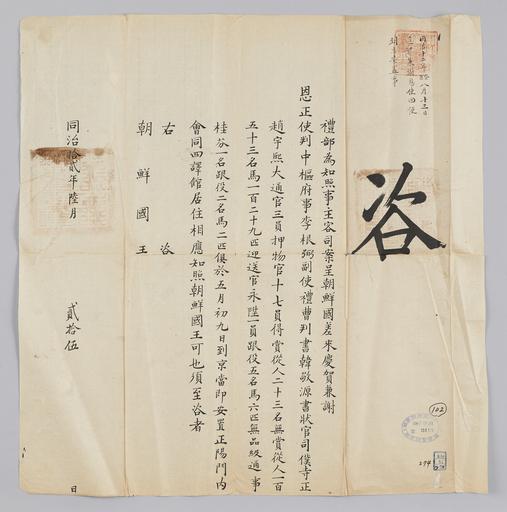 同治十二年癸八月十三日
咨
禮部為知照事主客司案呈朝鮮國差來慶賀兼謝
恩正使判中樞府事李根弼副使禮曹判書韓敬源書狀官司僕寺正
趙宇熙大通官三員押物官十七員得賞從人二十三名無賞從人一百
五十三名馬一百二十九匹迎送官永陞一員跟役五名馬六匹無品級通事
桂芬一名跟役二名馬二匹俱於五月初九日到京當即安置正陽門內
會同四譯館居住相應知照朝鮮國王可也須至咨者
右咨
朝鮮國王
同治拾貳年陸月 貳拾伍 日
102
294